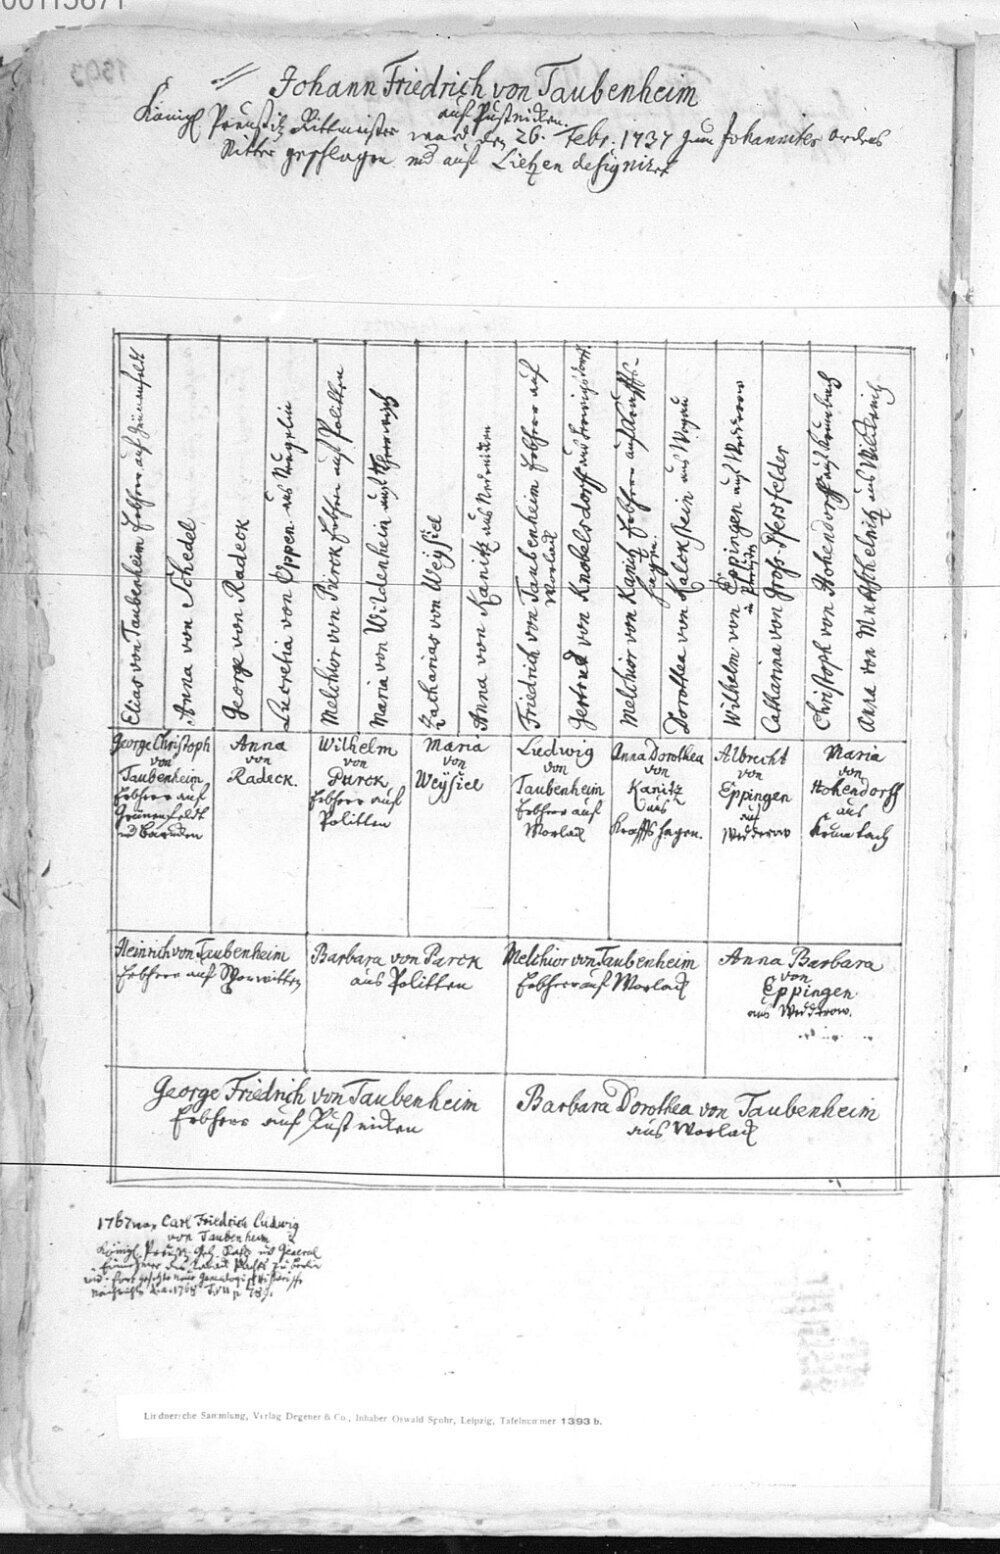 00115671
Johann Friedrich von Taubenheim
auf Pustnicken.
Königl Preußis. Rittmeister ward den 26. Febr. 1737 zum Johanniter ordres
Ritter geschlagen und auf Lietzen designiret
Elias von Taubenheim Erbherr auf
Anna von Schedel
George von Radeck
Lucretia von Oppen aus
Melchior von Purck Erbherr auf Politten
Maria von Wildenhein aus
Zacharias von Weysiel
Anna von Kanitz aus
Friedrich von Taubenheim Erbherr auf
Worlack
Gertrud von Knobelsdorff aus
Melchior von Kanitz Erbherr auf Kraffts-
hagen.
Dorothea von Kalckstein aus Wogau
Wilhelm von Eppingen auf Wederow
Catharina von Groß-Pfersfelder
Christoph von Hohendorff auf Krumbach
Anna von Mutschelnitz aus
George Christoph
von
Taubenheim
Erbherr auf
Grünenfeldt
und
Anna
von
Radeck.
Wilhelm
von
Purck
Erbherr auf
Politten
Maria
von
Weysiel
Ludwig
von
Taubenheim
Erbherr auf
Worlack
Anna Dorothea
von
Kanitz
aus
Kraffts hagen.
Albrecht
von
Eppingen
auf
Wederow
Maria
von
Hohendorff
aus
Krumbach
Heinrich von Taubenheim
Erbherr auf Sporwitten
Barbara von Parck
aus Politten
Melchior von Taubenheim
Erbherr auf Worlack
Anna Barbara
von
Eppingen
aus Wederow.
George Friedrich von Taubenheim
Erbherr auf Pustnicken
Barbara Dorothea von Taubenheim
aus Worlack
1767 war Carl Friedrich Ludwig
von Taubenheim
Königl. Preuß. Geh. Rath und General
Lindnersche Sammlung, Verlag Degener & Co., Inhaber Oswald Spohr, Leipzig, Tafelnummer 1393 b.